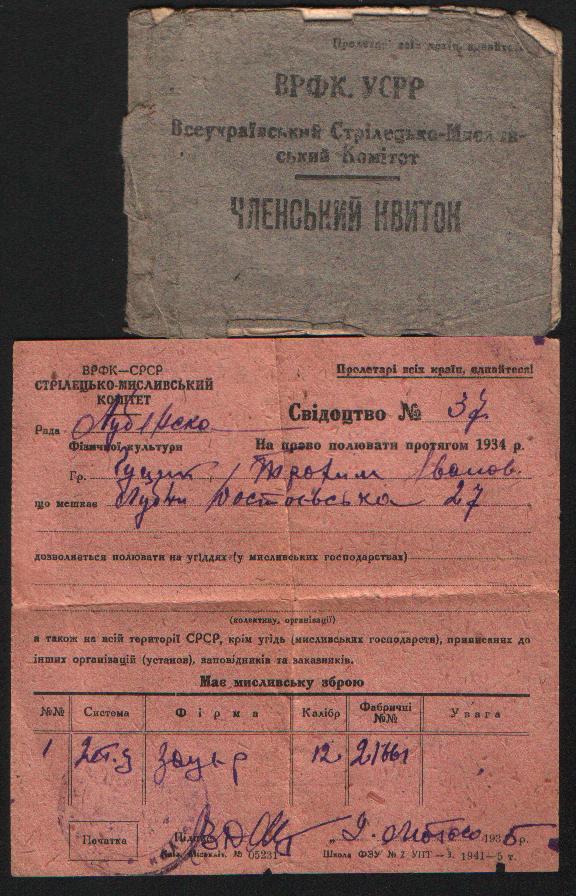 Пролетарі всіх країн, єднайтеся
ВРФК. УСРР
Всеукраїнський Стрілецько-Мислив-
ський Комітет
ЧЛЕНСЬКИЙ КВИТОК
ВРФК—СРСР
СТРІЛЕЦЬКО-МИСЛИВСЬКИЙ
КОМІТЕТ
Пролетарі всіх країн, єднайтеся!
Свідоцтво № 37
Рада
Фізичної культури
На право полювати протягом 1934 р.
Гр. Трохим Іванов.
що мешкає Лубни 27
дозволяється полювати на угіддях (у мисливських господарствах)
(колективу, організації)
а також на всій території СРСР, крім угідь (мисливських господарств), приписаних до
інших організацій (установ), заповідників та заказників.
Має мисливську зброю
№№ Система Фірма Калібр Фабричні №№ Увага
1 Зауер 12 21661
Печатка
Підпис
„9. лютого 1935 р.
№ 05231
Школа ФЗУ № 7 УПТ—3. 1941—5 т.